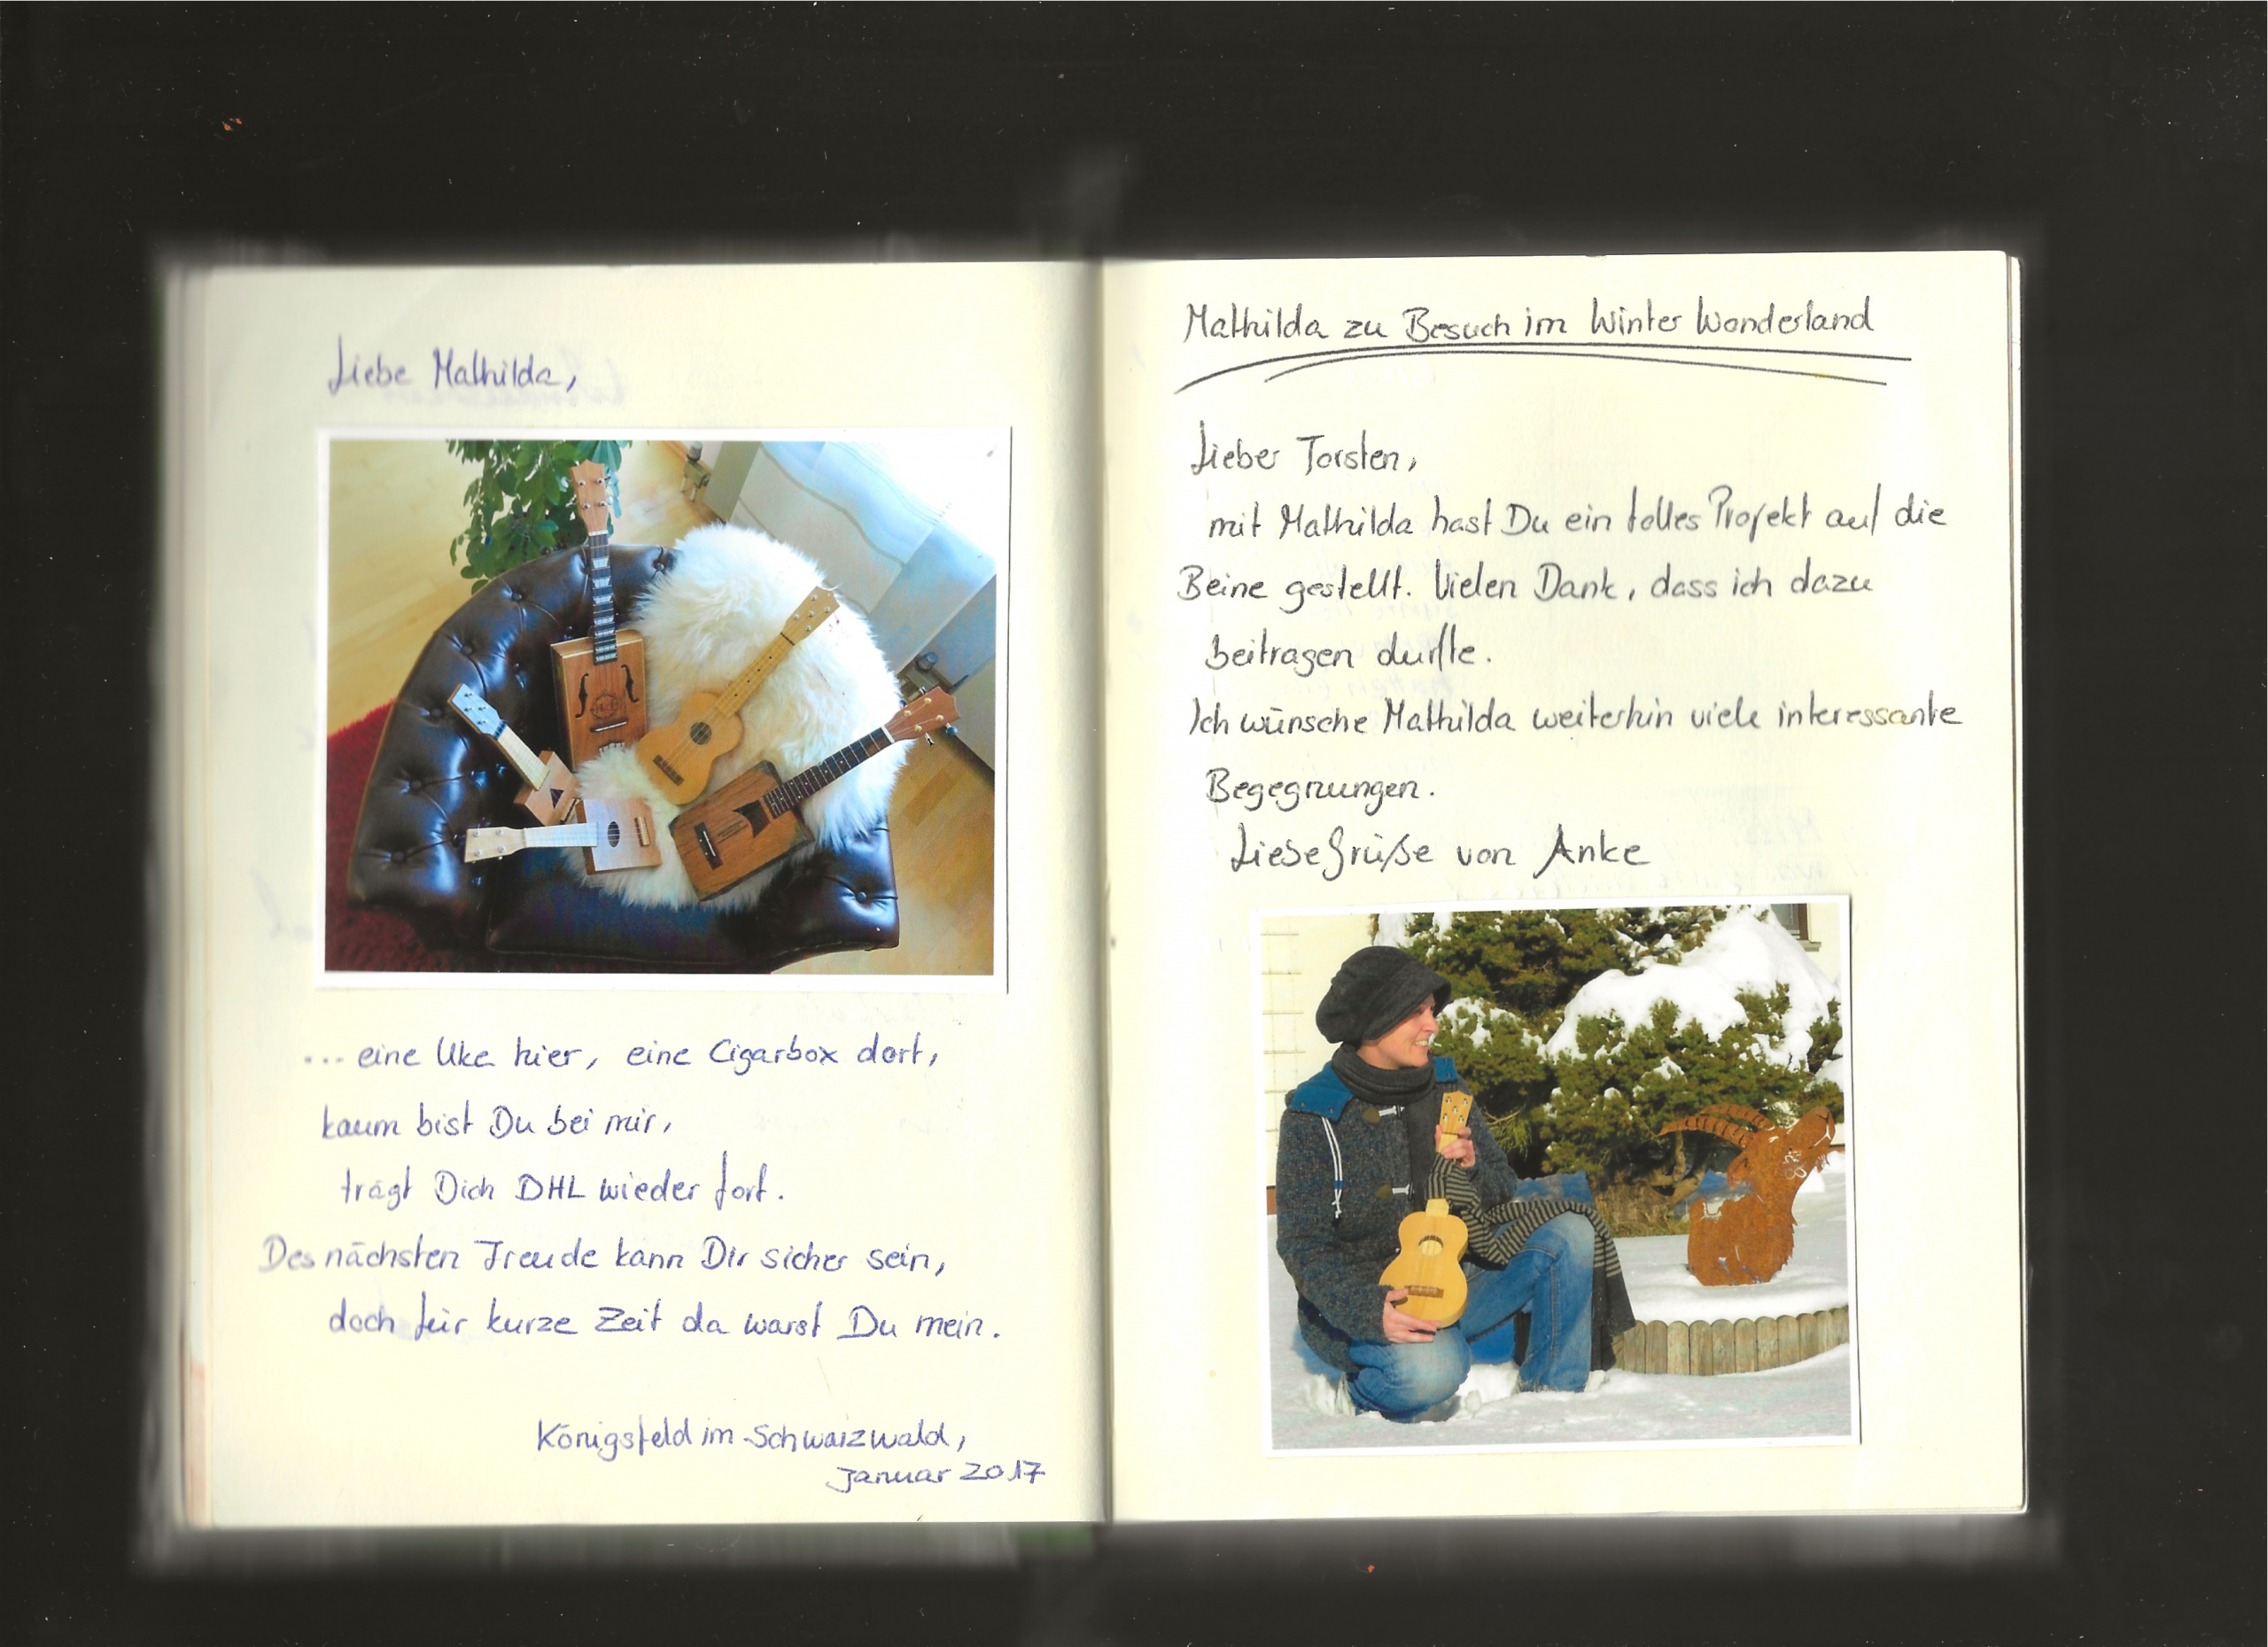 Liebe Mathilda,
... eine Uke hier, eine Cigarbox dort,
kaum bist Du bei mir,
trägt Dich DHL wieder fort.
Des nächsten Freude kann Dir sicher sein,
doch für kurze Zeit da warst Du mein.
Königsfeld im Schwarzwald,
Januar 2017
Mathilda zu Besuch im Winter Wonderland
Lieber Torsten,
mit Mathilda hast Du ein tolles Projekt auf die
Beine gestellt. Vielen Dank, dass ich dazu
beitragen durfte.
Ich wünsche Mathilda weiterhin viele interessante
Begegnungen.
Liebe Grüße von Anke